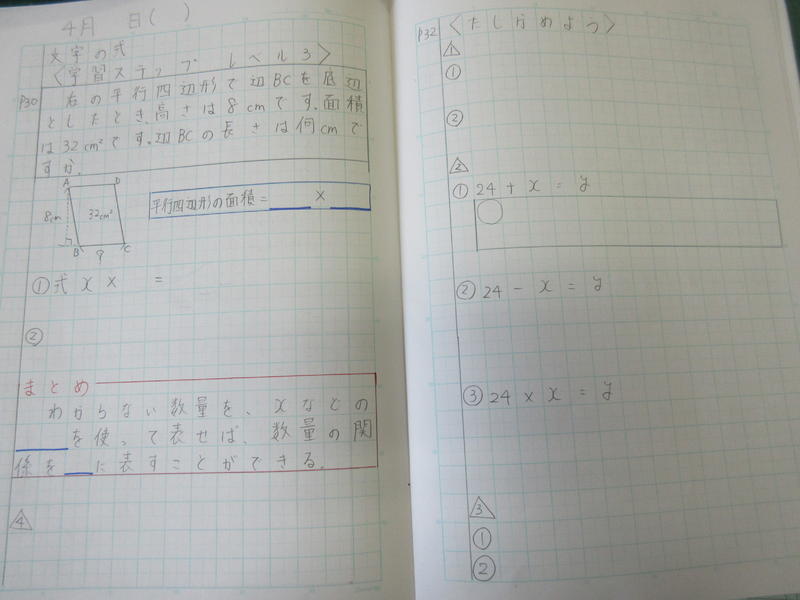 4月 日( )
文字の式
〈学習ステップ レベル3〉
P30
右の平行四辺形で辺BCを底辺
としたとき、高さは8cmです。面積
は32cm²です。辺BCの長さは何cmで
すか。
A D
8cm 32cm²
B C
?
平行四辺形の面積=＿＿×＿＿
①式 x × =
②
まとめ
わからない数量を、xなどの
＿＿を使って表せば、数量の関
係を＿に表すことができる。
4
P32 〈たしかめよう〉
1
①
②
2
① 24 + x = y
② 24 - x = y
③ 24 × x = y
3
①
②